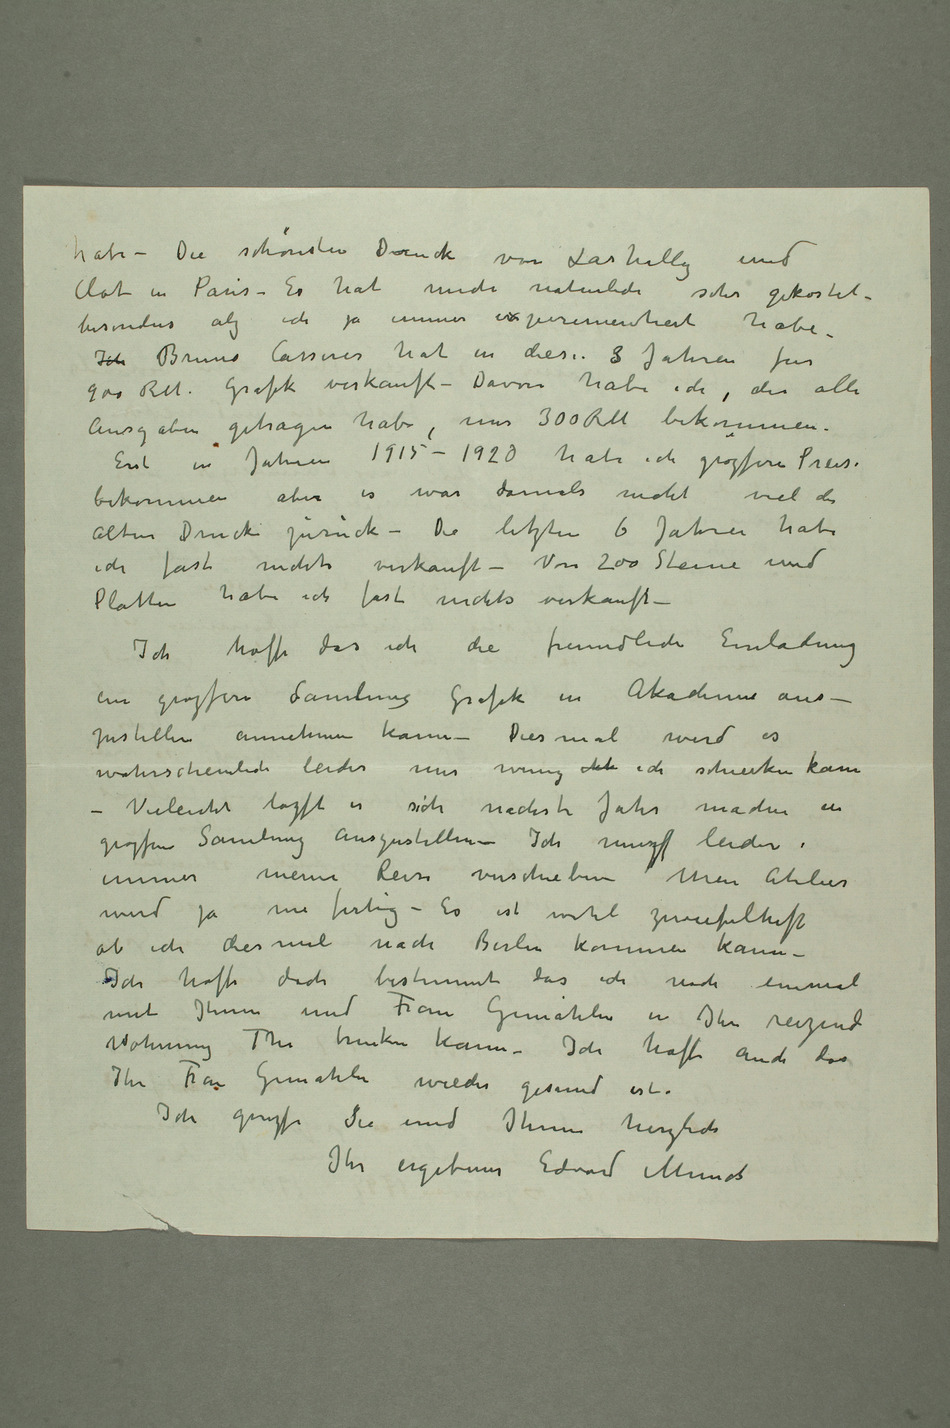 habe – Die schönsten Druck von Lashally und
Clot in Paris – Es hat mich natürlich sehr gekostet –
besonders als ich ja immer experimentiert habe –
Ich Bruno Cassirer hat in diese 3 Jahren für
900 RM. Grafik verkauft – Davon habe ich, der alle
Ausgaben getragen habe, nur 300 RM bekommen.
Erst in Jahren 1915 – 1920 habe ich grozfere Preise
bekommen aber es war damals nicht viel der
alten Drucke zurück – Die letzten 6 Jahren habe
ich fast nichts verkauft – Von 200 Steine und
Platten habe ich fast nichts verkauft –
Ich hoffe das ich die freundliche Einladung
eine grozfere Samlung Grafik in Akademie aus –
zustellen annehmen kann – Diesmal wird es
wahrscheinlich leider nur wenig ich schicken kann
– Vieleicht läzft es sich nächste Jahr machen eine
grozfere Samlung auszustellen – Ich muzf leider
immer meine Reise verschieben Mein Atelier
wird ja nie fertig – Es ist wohl zweifelhaft
ob ich diesmal nach Berlin kommen kann –
Ich hoffe doch bestimmt das ich noch einmal
mit Ihnen und Frau Gemahlin in Ihre reizende
Wohnung The trinken kann – Ich hoffe auch das
Ihre Frau Gemahlin wieder gesund ist.
Ich grüzfe Sie und Ihnen herzlich
Ihr ergebener Edvard Munch